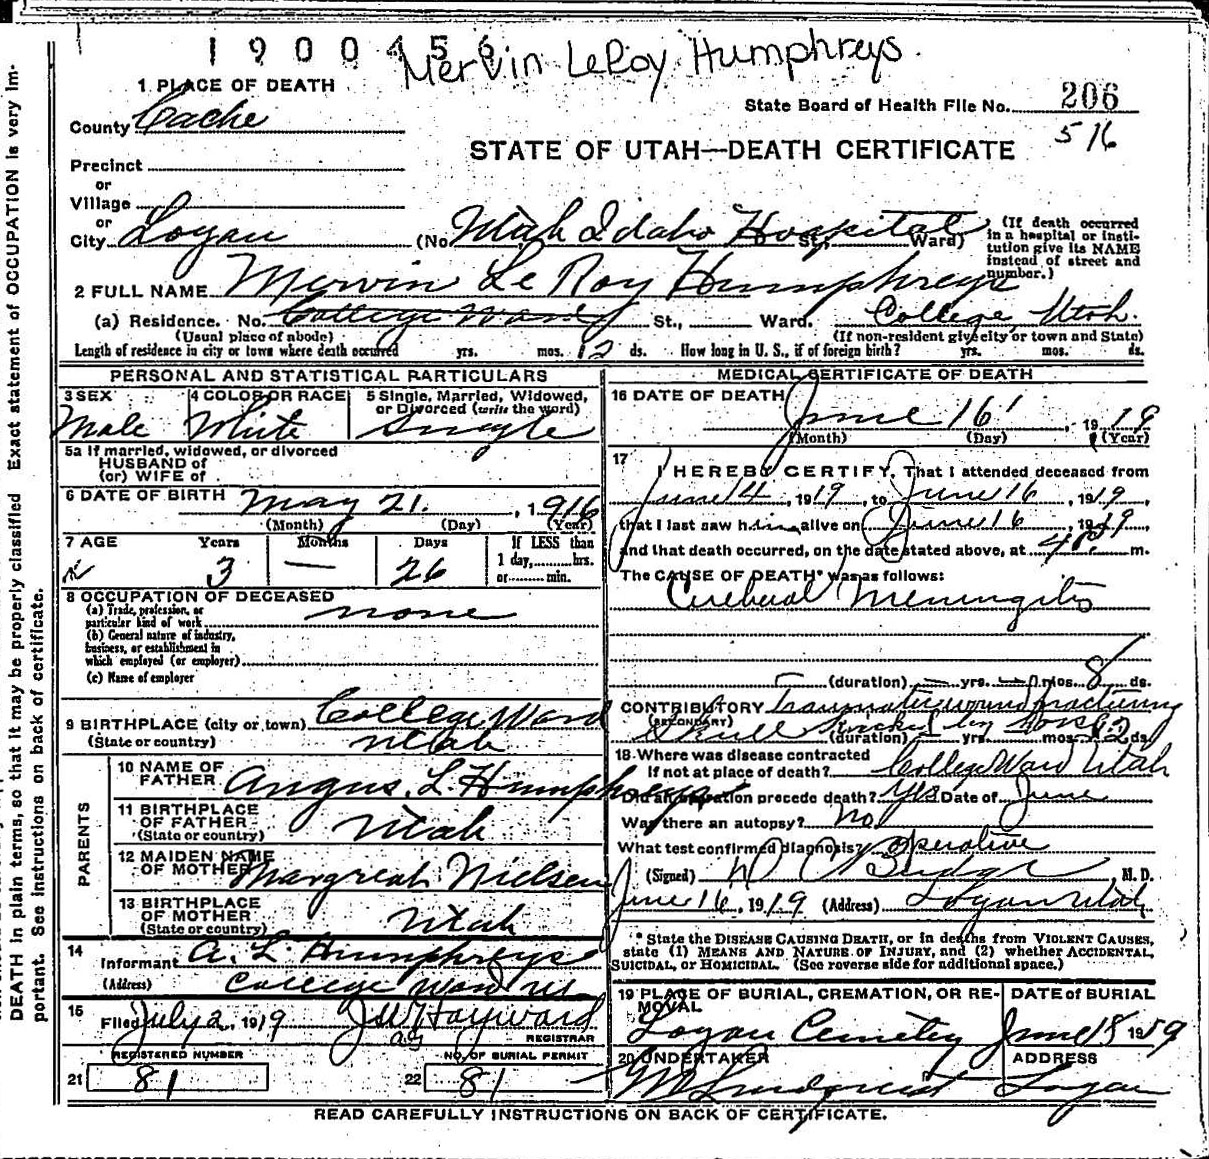 1900456
Mervin LeRoy Humphreys.
1 PLACE OF DEATH
State Board of Health File No. 206
County Cache
516
STATE OF UTAH—DEATH CERTIFICATE
Precinct
or
Village
or
City Logan (No. Utah Idaho Hospital St., Ward)
(If death occurred in a hospital or institution give its NAME instead of street and number.)
2 FULL NAME Mervin Le Roy Humphreys
(a) Residence. No. College Ward St., Ward. College, Utah.
(Usual place of abode) (If non-resident give city or town and State)
Length of residence in city or town where death occurred yrs. mos. 12 ds. How long in U. S., if of foreign birth? yrs. mos. ds.
PERSONAL AND STATISTICAL PARTICULARS
3 SEX 4 COLOR OR RACE 5 Single, Married, Widowed, or Divorced (write the word)
Male White Single
5a If married, widowed, or divorced
HUSBAND of
(or) WIFE of
6 DATE OF BIRTH May 21, 1916
(Month) (Day) (Year)
7 AGE Years Months Days If LESS than
1 day, hrs.
or min.
3 — 26
8 OCCUPATION OF DECEASED
(a) Trade, profession, or particular kind of work none
(b) General nature of industry, business, or establishment in which employed (or employer)
(c) Name of employer
9 BIRTHPLACE (city or town) College Ward
(State or country) Utah
PARENTS
10 NAME OF FATHER Angus L. Humphreys
11 BIRTHPLACE OF FATHER Utah
(State or country)
12 MAIDEN NAME OF MOTHER Margreah Nielsen
13 BIRTHPLACE OF MOTHER Utah
(State or country)
14
Informant A. L. Humphreys
(Address) College Ward Ut.
15
Filed July 2, 1919 J W Hayward
REGISTRAR
REGISTERED NUMBER NO. OF BURIAL PERMIT
21 81 22 81
MEDICAL CERTIFICATE OF DEATH
16 DATE OF DEATH June 16, 1919
(Month) (Day) (Year)
17
I HEREBY CERTIFY, That I attended deceased from
June 14, 1919, to June 16, 1919,
that I last saw him alive on June 16, 1919,
and that death occurred, on the date stated above, at 4 P. m.
The CAUSE OF DEATH* was as follows:
Cerebral Meningitis
(duration) — yrs. — mos. 8 ds.
CONTRIBUTORY Traumatic wound fracturing
(SECONDARY) Skull Kicked by horse
(duration) yrs. mos. 12 ds.
18 Where was disease contracted
If not at place of death? College Ward Utah
Did an operation precede death? Yes Date of June
Was there an autopsy? No
What test confirmed diagnosis? Operative
(Signed) D C Budge, M. D.
June 16, 1919 (Address) Logan Utah
* State the DISEASE CAUSING DEATH, or in deaths from VIOLENT CAUSES,
state (1) MEANS AND NATURE OF INJURY, and (2) whether ACCIDENTAL,
SUICIDAL, or HOMICIDAL. (See reverse side for additional space.)
19 PLACE OF BURIAL, CREMATION, OR REMOVAL DATE of BURIAL
Logan Cemetery June 18 1919
20 UNDERTAKER ADDRESS
Lindquist Logan
READ CAREFULLY INSTRUCTIONS ON BACK OF CERTIFICATE.
Exact statement of OCCUPATION is very im-
DEATH in plain terms, so that it may be properly classified
portant. See instructions on back of certificate.